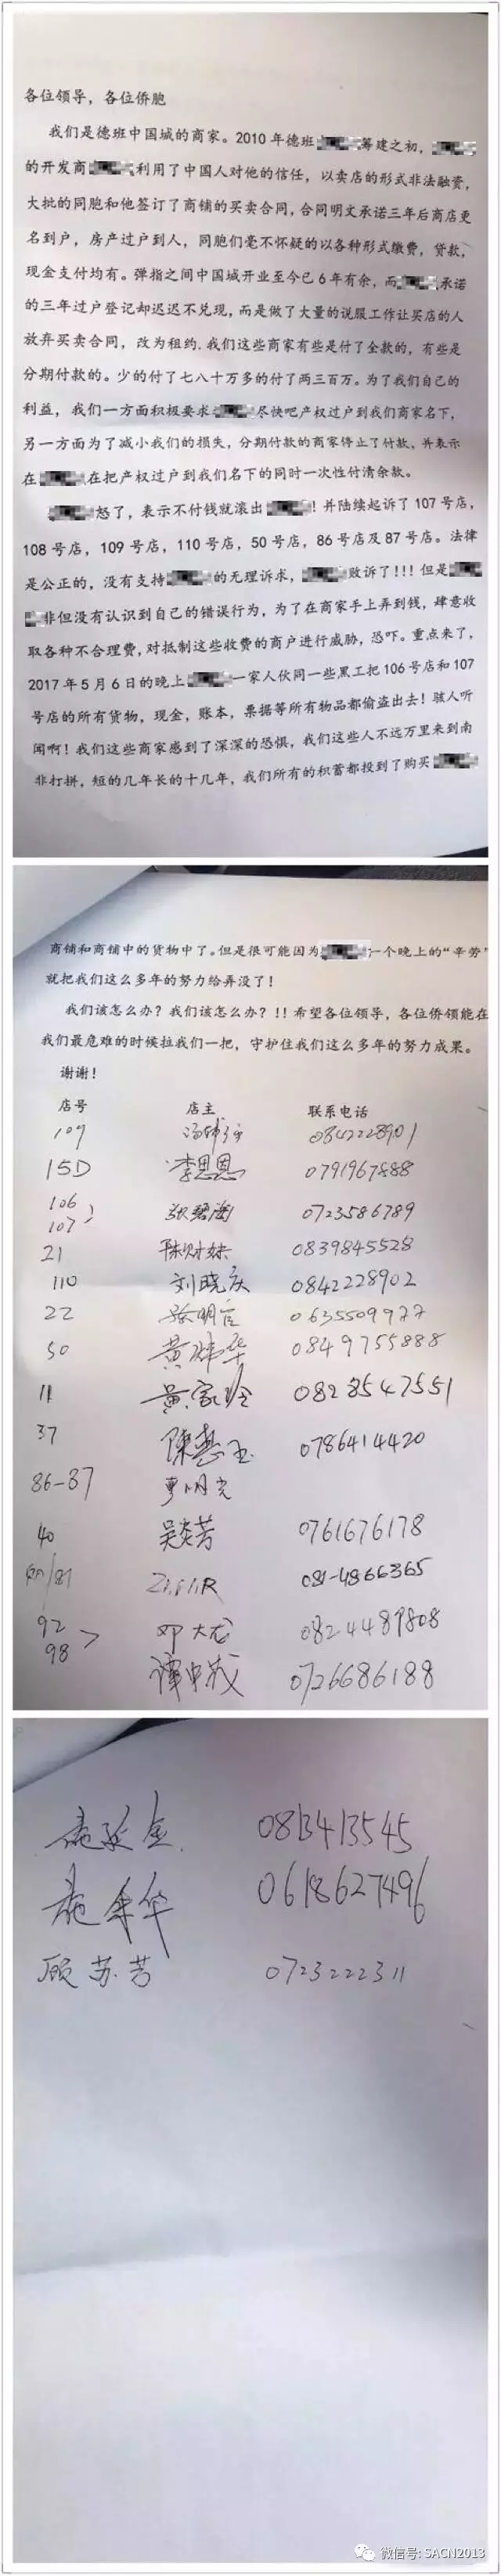 各位领导，各位侨胞
我们是德班中国城的商家。2010年德班 筹建之初，
的开发商 利用了中国人对他的信任，以卖店的形式非法融资，
大批的同胞和他签订了商铺的买卖合同，合同明文承诺三年后商店更
名到户，房产过户到人，同胞们毫不怀疑的以各种形式缴费，贷款，
现金支付均有。弹指之间中国城开业至今已6年有余，而 承诺
的三年过户登记却迟迟不兑现，而是做了大量的说服工作让买店的人
放弃买卖合同，改为租约.我们这些商家有些是付了全款的，有些是
分期付款的。少的付了七八十万多的付了两三百万。为了我们自己的
利益，我们一方面积极要求 尽快吧产权过户到我们商家名下，
另一方面为了减小我们的损失，分期付款的商家停止了付款，并表示
在 在把产权过户到我们名下的同时一次性付清余款。
怒了，表示不付钱就滚出 ！并陆续起诉了107号店，
108号店，109号店，110号店，50号店，86号店及87号店。法律
是公正的，没有支持 的无理诉求， 败诉了!!!但是
非但没有认识到自己的错误行为，为了在商家手上弄到钱，肆意收
取各种不合理费，对抵制这些收费的商户进行威胁，恐吓。重点来了，
2017年5月6日的晚上 一家人伙同一些黑工把106号店和107
号店的所有货物，现金，账本，票据等所有物品都偷盗出去！骇人听
闻啊！我们这些商家感到了深深的恐惧，我们这些人不远万里来到南
非打拼，短的几年长的十几年，我们所有的积蓄都投到了购买
商铺和商铺中的货物中了。但是很可能因为 一个晚上的“辛劳”
就把我们这么多年的努力给弄没了！
我们该怎么办？我们该怎么办？!!希望各位领导，各位侨领能在
我们最危难的时候拉我们一把，守护住我们这么多年的努力成果。
谢谢！
店号 店主 联系电话
109 0842228901
15D 李恩恩 0791967888
106
107 张碧海 0723586789
21 陈财妹 0839845528
110 刘晓庆 0842228902
22 张明官 0635509977
50 黄炜华 0849755888
11 黄家玲 0828547551
37 陈慧玉 0786414420
86-87 曹明光
40 吴炎芳 0761676178
/81 081-4866365
92
98 邓大龙 0824489808
谭中成 0726686188
施延金 0813413545
施 华 0618627496
顾苏芳 0723222311
微信号: SACN2013